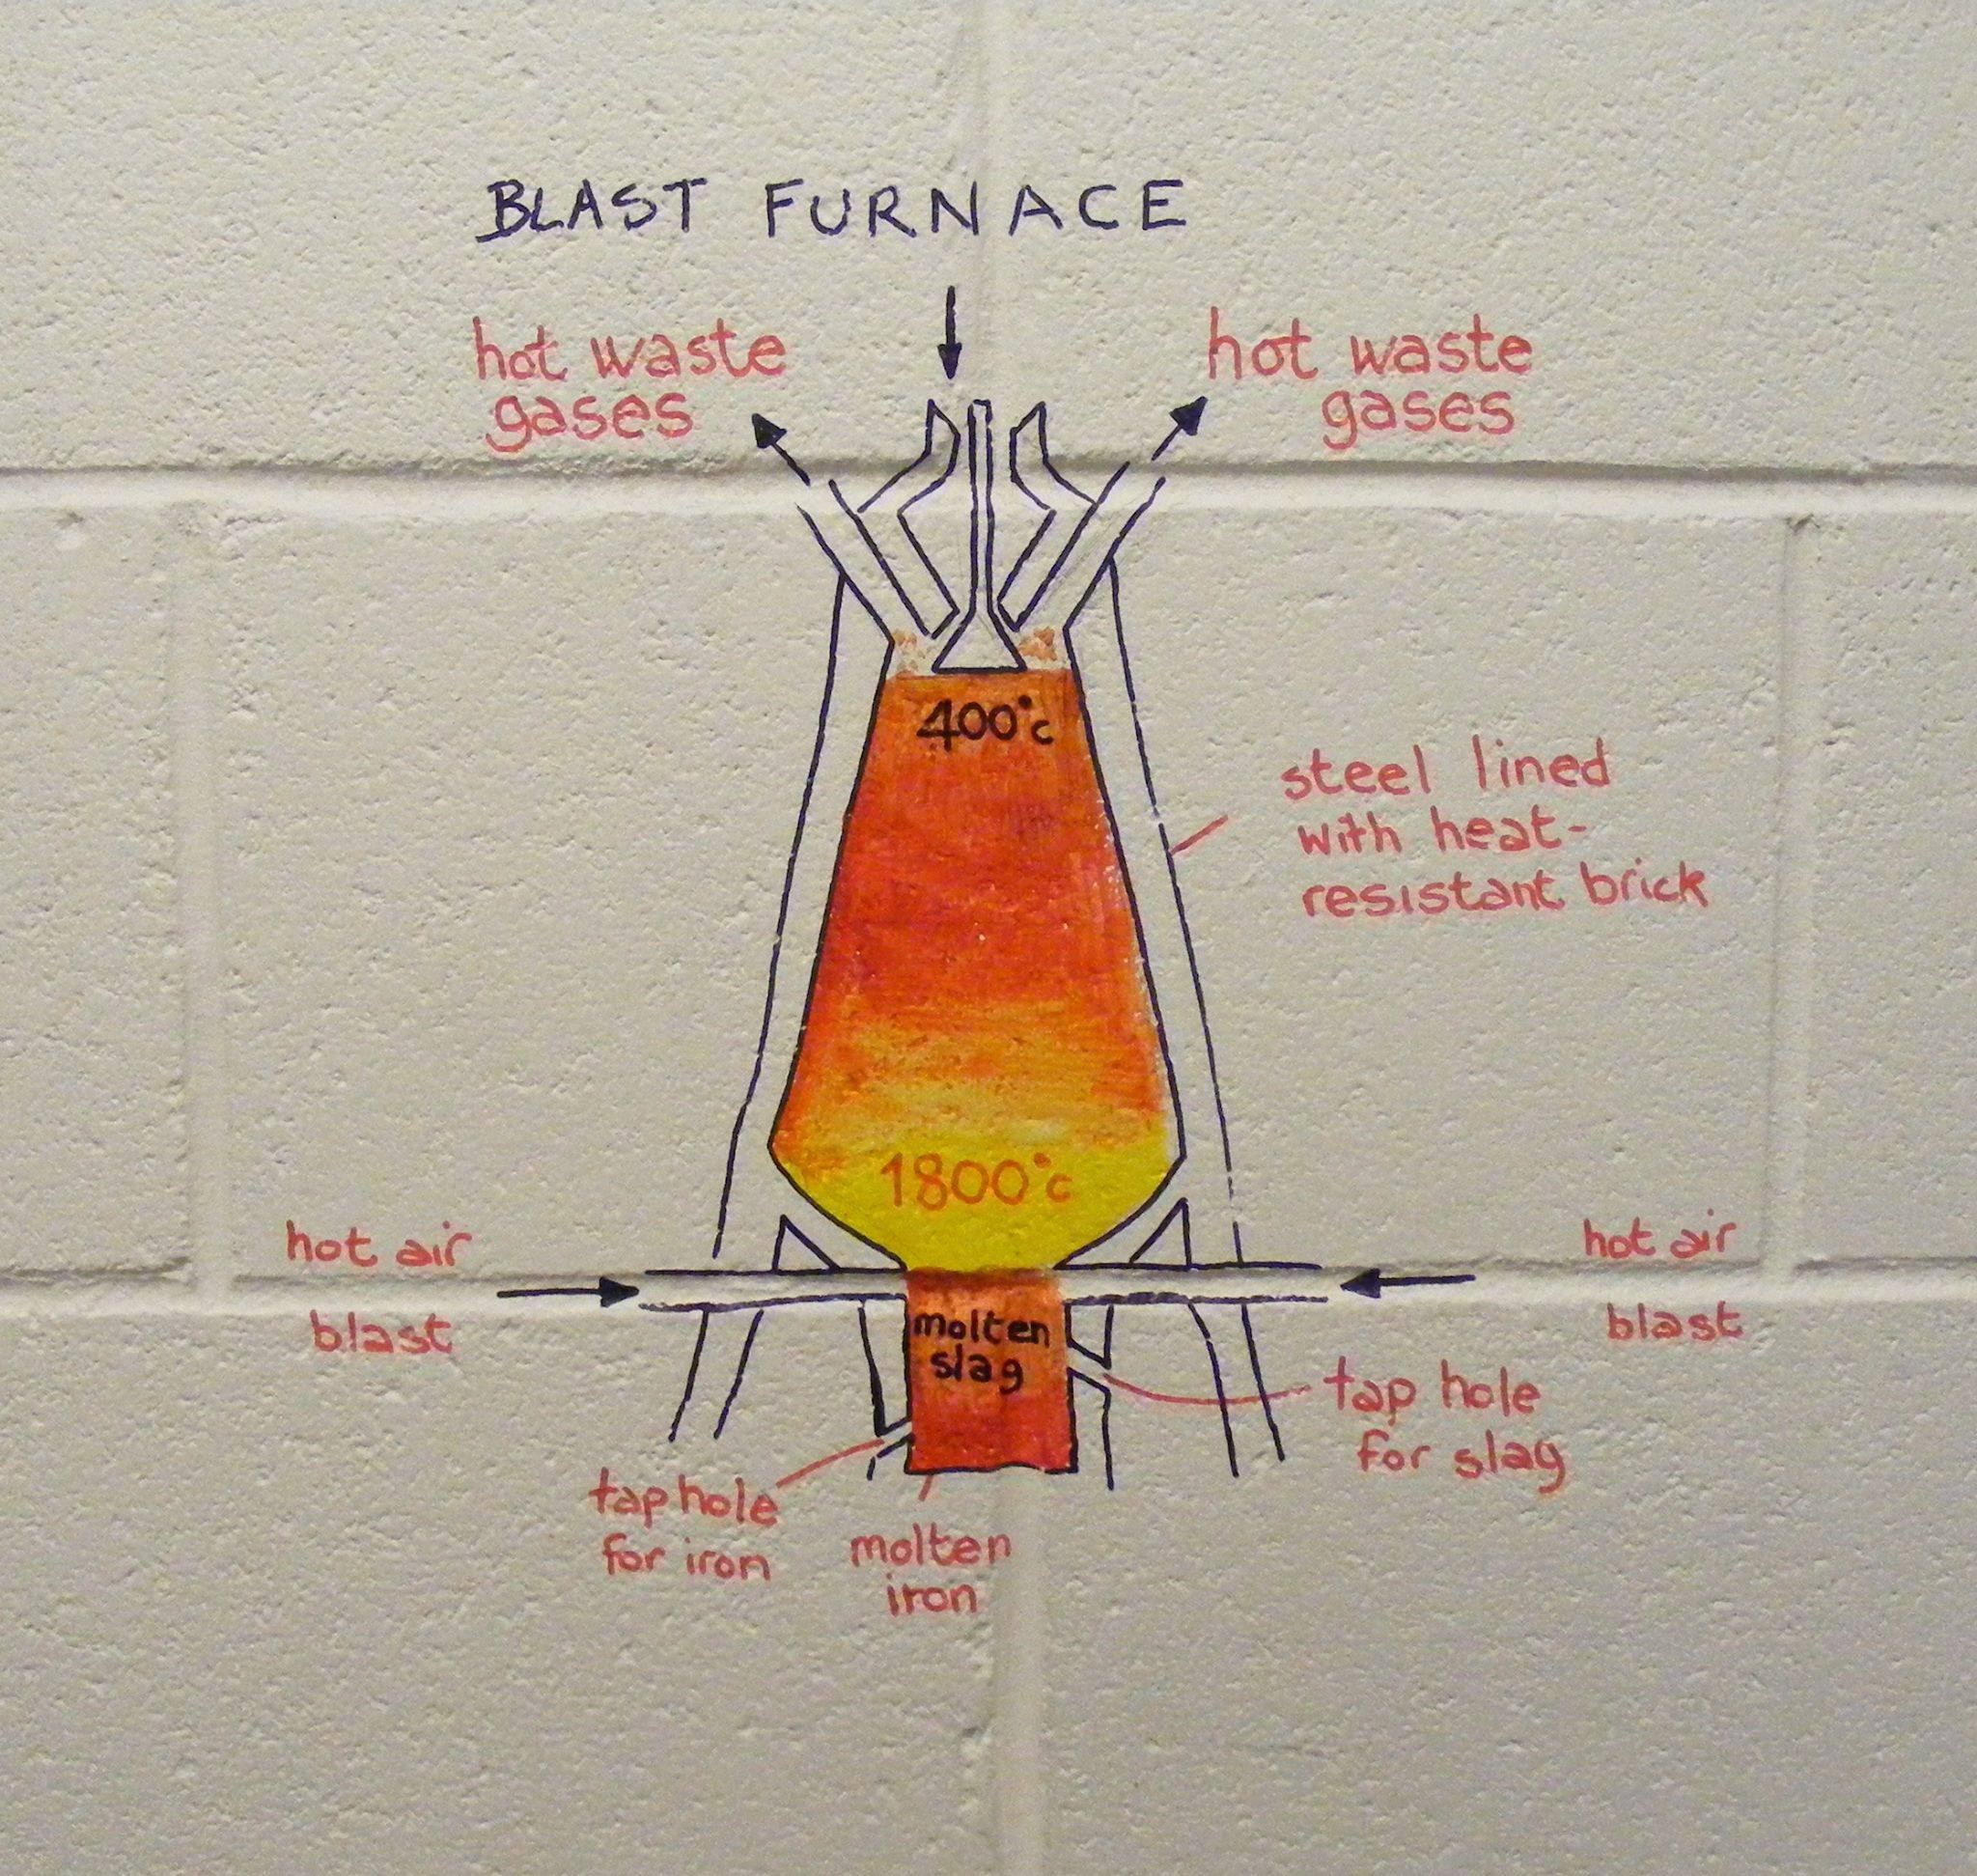 BLAST FURNACE
hot waste
gases
hot waste
gases
400°c
steel lined
with heat-
resistant brick
1800°c
hot air
blast
hot air
blast
molten
slag
tap hole
for slag
tap hole
for iron
molten
iron